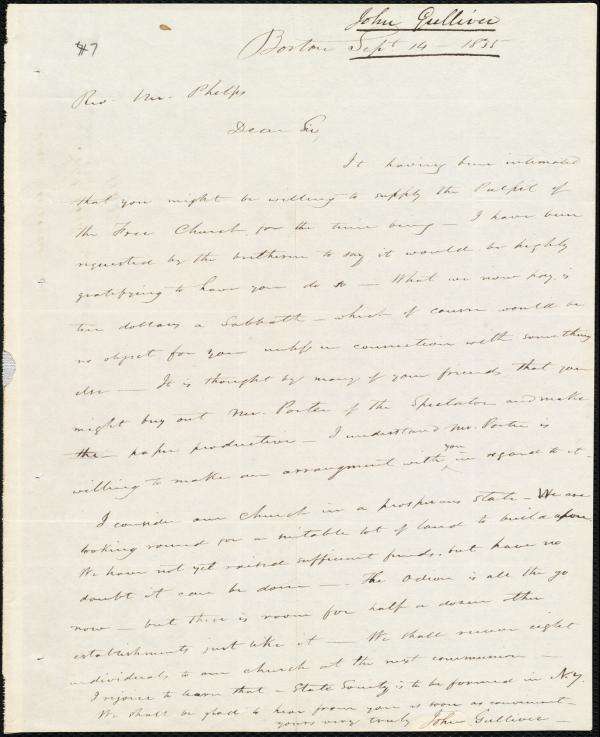 John Gulliver
#7
Boston Sept 14 - 1835
Rev. Mr. Phelps
Dear Sir,
It having been intimated
that you might be willing to supply the Pulpit of
the Free Church, for the time being — I have been
requested by the brethren to say it would be highly
gratifying to have you do so — What we now pay is
ten dollars a Sabbath — which of course would be
no object for you unless in connection with something
else — It is thought by many of your friends that you
might buy out Mr. Porter of the Spectator and make
the paper productive — I understand Mr. Porter is
willing to make an arrangment with you in regard to it —
I consider our Church in a prosperous State — We are
looking round for a suitable lot of land to build upon.
We have not yet raised sufficient funds, but have no
doubt it can be done — The Odeon is all the go
now — but there is room for half a dozen other
establishments just like it — We shall receive eight
individuals to our church at the next communion —
I rejoice to learn that a State Society is to be formed in N.Y.
We shall be glad to hear from you as soon as convenient —
yours very truly John Gulliver —